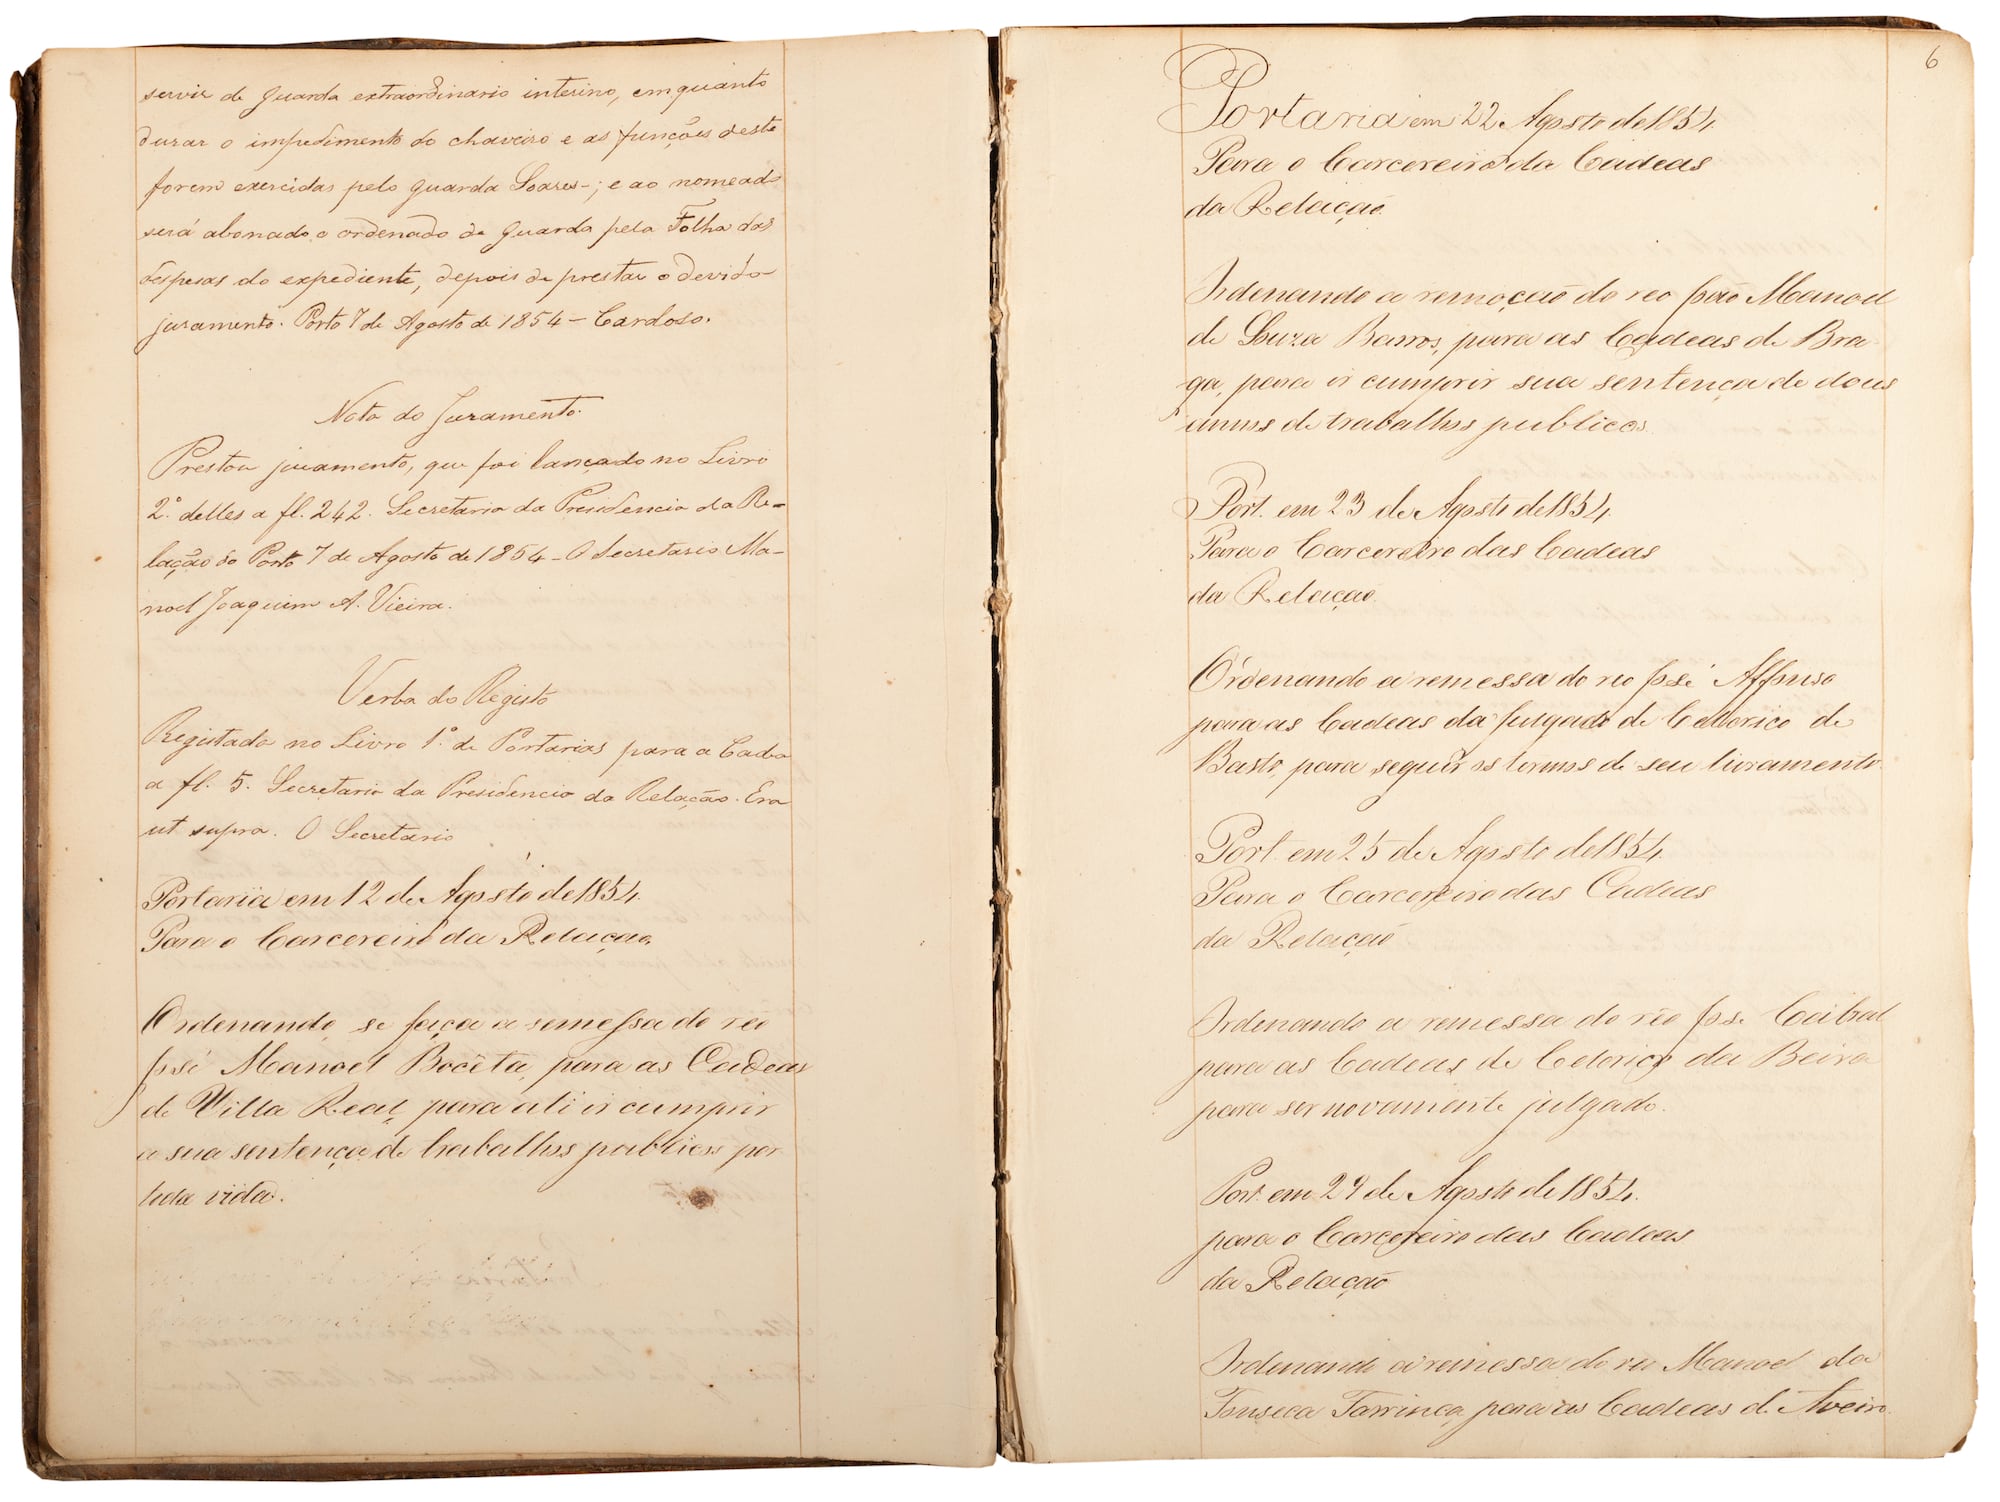 servir de guarda extraordinario interino, emquanto
durar o impedimento do chaveiro e as funções deste
forem exercidas pelo guarda Soares-; e ao nomeado
será abonado o ordenado de guarda pela Folha das
despesas do expediente, depois de prestar o devido
juramento. Porto 7 de Agosto de 1854 - Cardoso.
Nota do Juramento.
Prestou juramento, que foi lançado no Livro
2.º delles a fl. 242. Secretaria da Presidencia da Re-
lação do Porto 7 de Agosto de 1854 - O Secretario Ma-
noel Joaquim A. Vieira.
Verba do Registo
Registada no Livro 1.º de Portarias para a Cadea
a fl. 5. Secretaria da Presidencia da Relação. Era
ut supra. O Secretario
Portaria em 12 de Agosto de 1854.
Para o Carcereiro da Relação.
Ordenando, se faça a remessa do réo
José Manoel Bocêta, para as Cadeas
de Villa Real, para ali ir cumprir
a sua sentença de trabalhos publicos por
toda vida.
6
Portaria em 22 Agosto de 1854.
Para o Carcereiro da Cadeas
da Relação
Ordenando a remoção do reo João Manoel
de Souza Barros, para as Cadeas de Bra
ga, para ir cumprir sua sentença de dous
annos de trabalhos publicos.
Port. em 23 de Agosto de 1854.
Para o Carcereiro das Cadeas
da Relação.
Ordenando a remessa do reo José Affonso
para as Cadeas da Julgado de Cellorico de
Basto, para seguir os termos de seu livramento.
Port. em 25 de Agosto de 1854.
Para o Carcereiro das Cadeias
da Relação
Ordenando a remessa do réo José Cabral
para as Cadeas de Celorico da Beira
para ser novamente julgado.
Port. em 29 de Agosto de 1854.
para o Carcereiro das Cadeas
da Relação
Ordenando a remessa do reo Manoel da
Fonseca Tarrinca, para as Cadeas de Aveiro.